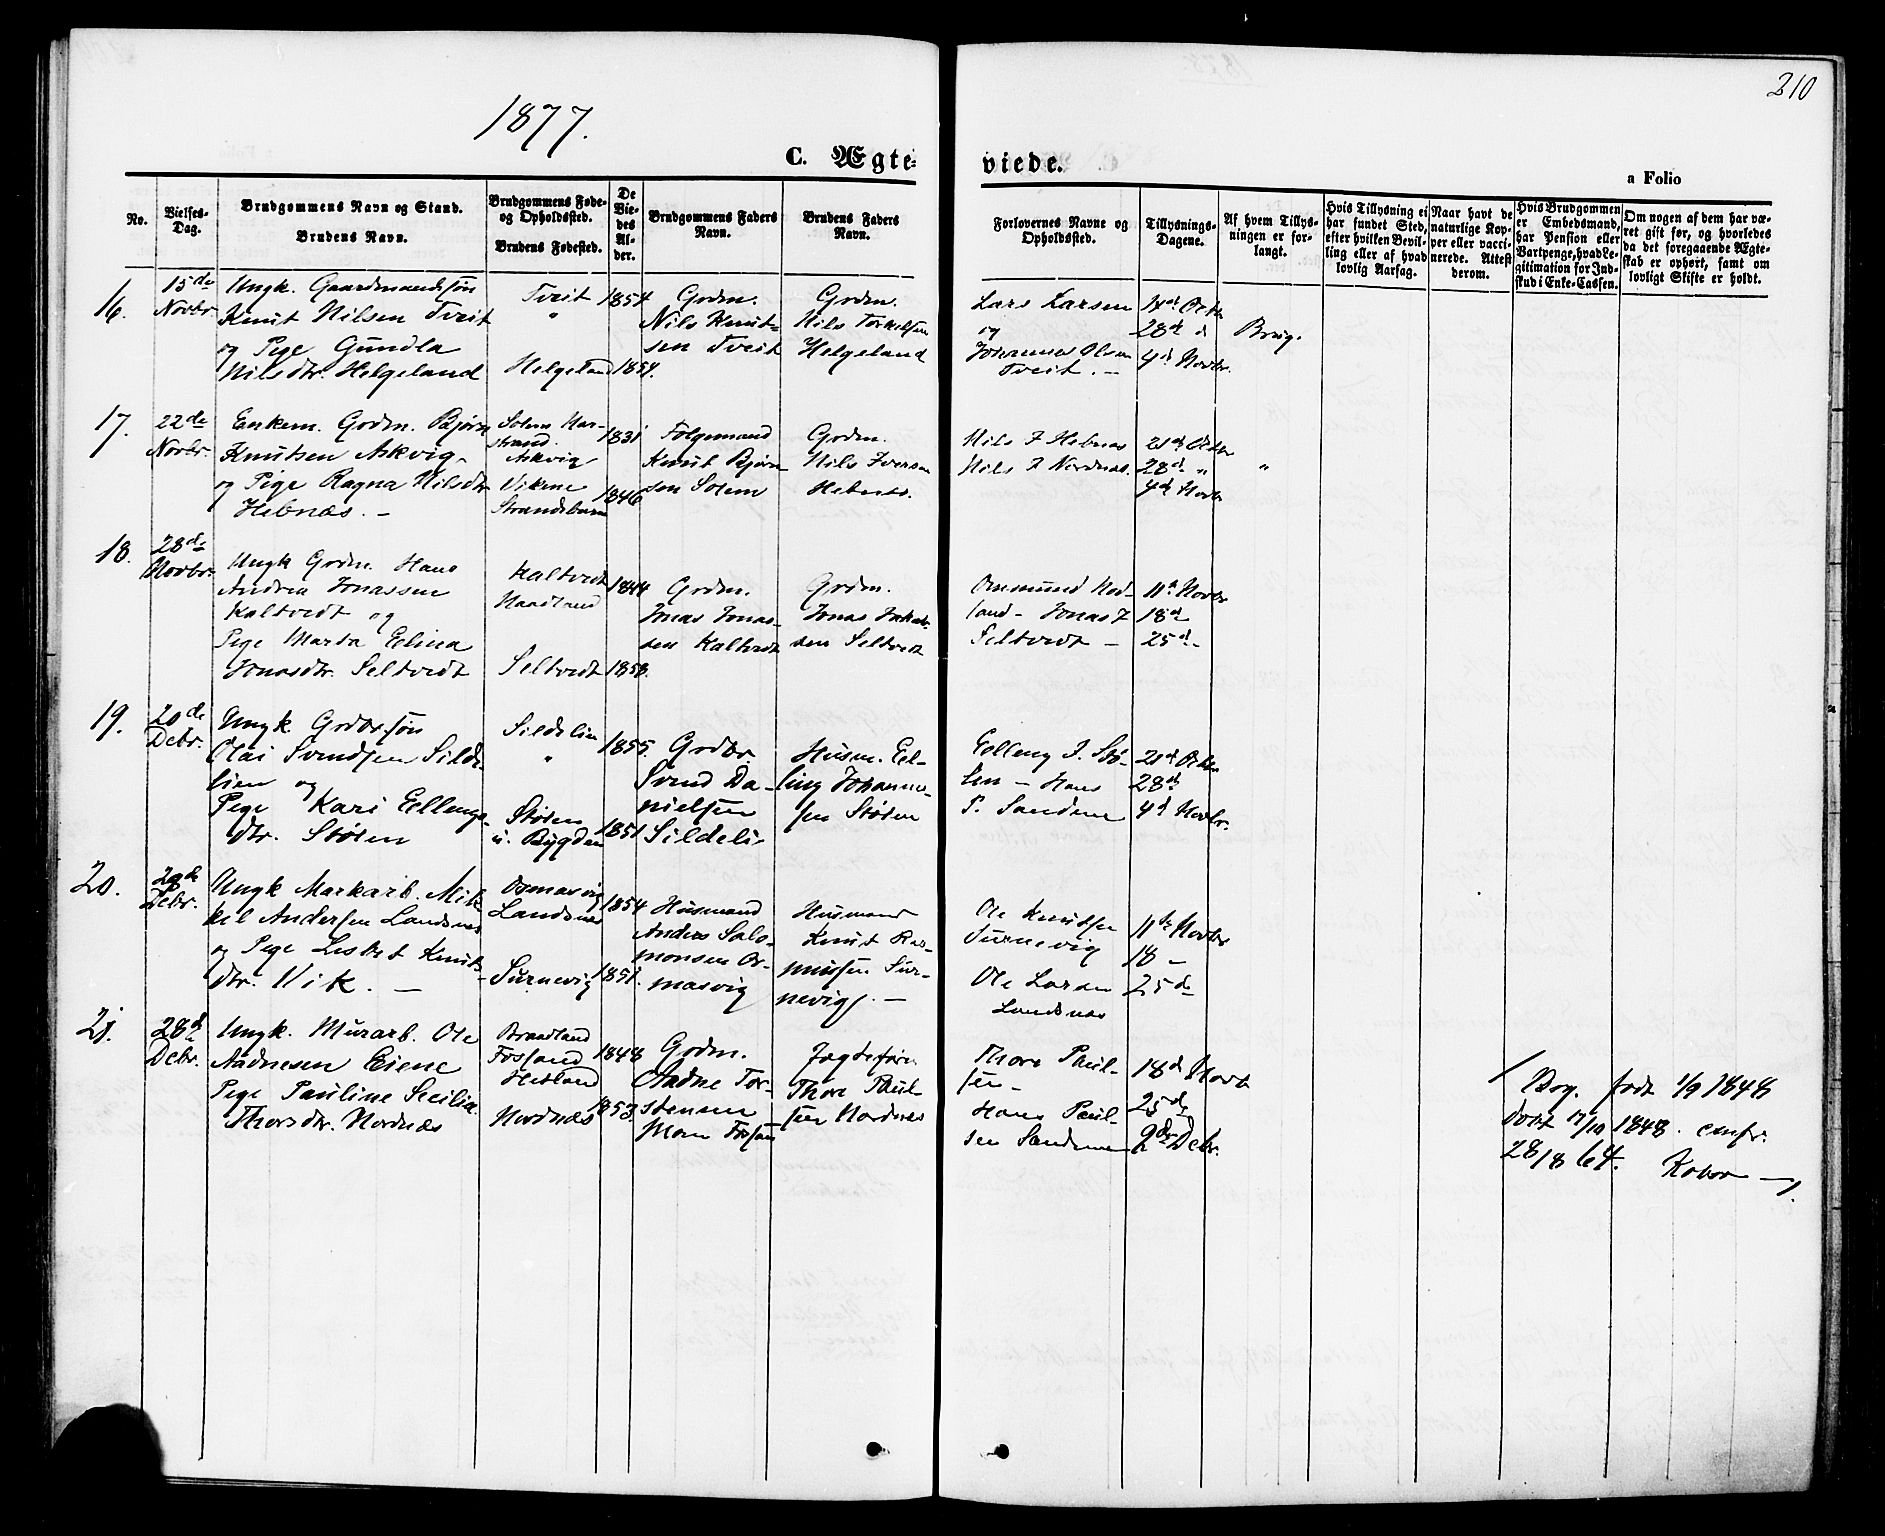 210
1877.
C. Ægte-
viede.
a Folio
No.
Vielses-
Dag.
Brudgommens Navn og Stand.
Brudens Navn.
Brudgommens Føde-
og Opholdssted.
Brudens Fødested.
De
Vie-
des
Al-
der.
Brudgommens Faders
Navn.
Brudens Faders
Navn.
Forlovernes Navne og
Opholdssted.
Tillysnings-
Dagene.
Af hvem Tillys-
ningen er for-
langt.
Hvis Tillysning ei
har fundet Sted,
efter hvilken Bevil-
ling eller af hvad
lovlig Aarsag.
Naar havt de
naturlige Kop-
per eller vacci-
nerede. Attest
derom.
Hvis Brudgommen
er Embedsmand,
har Pension eller
Vartpenge, hvad Le-
gitimation for Ind-
skud i Enke-Cassen.
Om nogen af dem har væ-
ret gift før, og hvorledes
da det foregaaende Ægte-
skab er ophørt, samt om
lovligt Skifte er holdt.
16.
15de
Novbr
Ungk. Gaardmandssøn
Knut Nilsen Tveit
og Pige Gundla
Nilsdtr. Helgeland
Tveit
"
Helgeland
1854
1854.
Grdm.
Nils Knut-
sen Tveit
Grdm.
Nils Torkelsen
Helgeland
Lars Larsen
og
Johannes Olsen
Tveit. –
Octbr
28de
4de Novbr.
Brug.
17.
22de
Novbr.
Enkem. Grdm. Bjørn
Knutsen Askvig
og Pige Ragna Nilsdtr
Hebnæs. –
Solem
strand
Askvig
Vikene
Strandebarm
1831
1846
Følgemand
Knut Bjørn-
sen Solem
Grdm.
Nils Iversen
Hebnes.
Nils I Hebnæs
Nils I Nordnæs.
21de Octbr
28de "
4de Novbr
"
18.
28de
Novbr.
Ungk Grdm. Hans
Andrea Jonassen
Kaltvedt og
Pige Marta Elina
Jonasdtr. Seltvedt
Kaltvedt
Haadland
Seltvedt
1844
1858.
Grdm.
Jonas Jonas-
sen Kaltvedt
Grdm.
Jonas Jakob-
sen Seltvedt
Ommund Had-
land – Jonas I
Seltvedt –
11te Novbr
18de
25de
19.
20de
Debr.
Ungk. Grdbr.søn
Olai Svendsen Silde-
lien og
Pige Kari Ellings-
dtr. Støsen
Sildelien
"
Støsen
i. Bygden
1855.
1851
Grdbr.
Svend Da-
nielsen
Sildeli
Husm. El-
ling Johannes-
sen Støsen
Elling J. Stø-
sen – Hans
P. Sandene
21de Octbr
28de
4de Novbr.
20.
Debr.
Ungk Markarb. Mik-
kel Andersen Landsnæs
og Pige Lisbet Knuts-
dtr. Vik. –
Osmarvig
Landsnæs
Surnevig
1854
1851.
Husmand
Anders Salo-
monsen Or-
masvig
Husmand
Knut Ras-
mussen Sur-
nevig. –
Ole Knudsen
Surnevig
Ole Larsen
Landsnæs
11te Novbr
18 –
25de
21.
28de
Debr.
Ungk. Murarb. Ole
Aadnesen Eiene
Pige Pauline Secilie
Thorsdtr. Nordnæs
Braadland
Fossand
Hetland
Nordnæs
1848
1853.
Grdm.
Aadne Tor-
stensen
Jagtefører
Thore Paul-
sen Nordnes
Thore Paul-
sen –
Hans Paul-
sen Sandene
18de Novb
25de
2de Debr.
født 1/9 1848
døbt 17/10 1848. confir.
28/8 64.